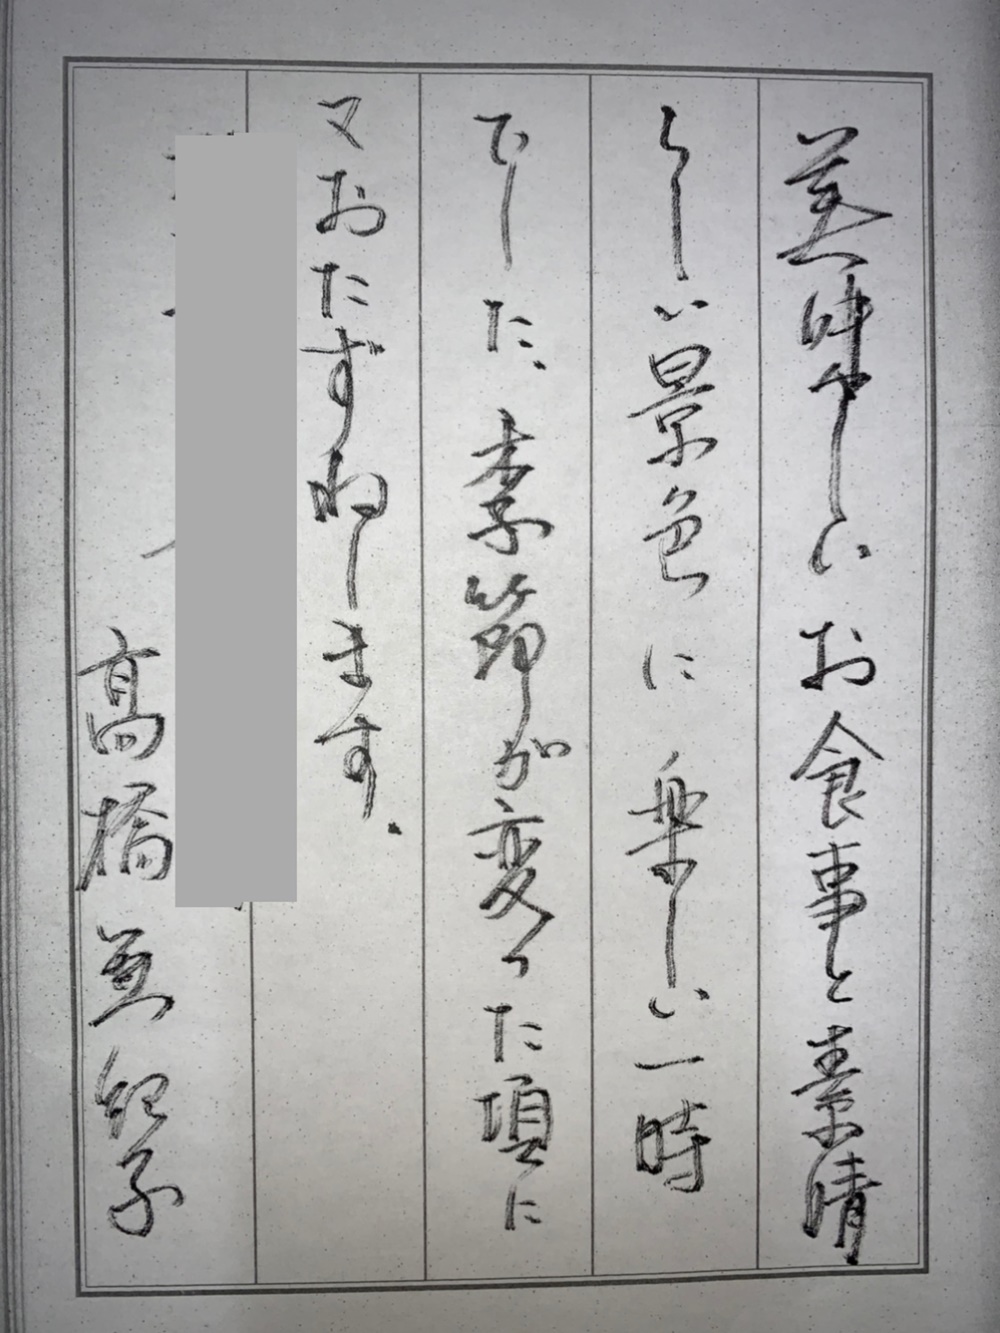 美味しいお食事と素晴
らしい景色に楽しい一時
でした、季節が変った頃に
又おたずねします.
高橋 紀子